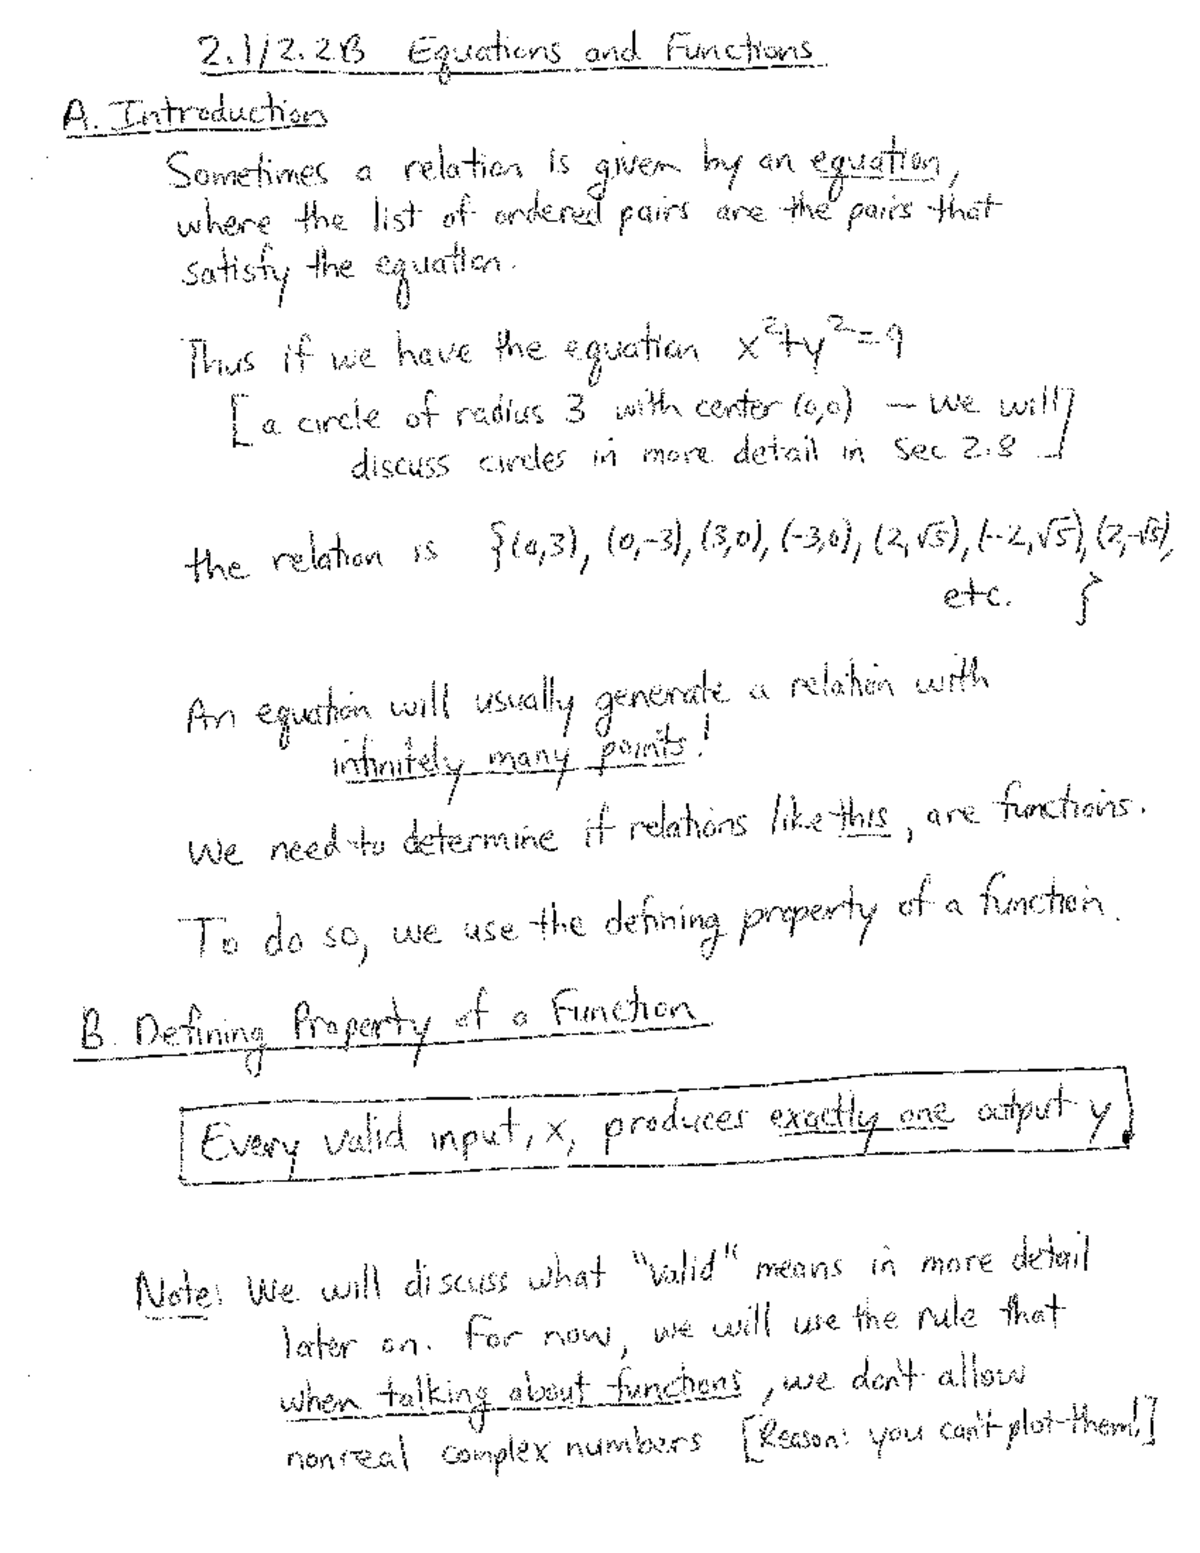 2.1/2.2B Equations and Functions
A. Introduction
Sometimes a relation is given by an equation,
where the list of ordered pairs are the pairs that
satisfy the equation.
Thus if we have the equation x²+y²=9
[a circle of radius 3 with center (0,0) — we will
discuss circles in more detail in Sec 2.8]
the relation is {(0,3), (0,-3), (3,0), (-3,0), (2,√5), (-2,√5), (2,-√5),
etc. }
An equation will usually generate a relation with
infinitely many points!
We need to determine if relations like this, are functions.
To do so, we use the defining property of a function.
B. Defining Property of a Function
Every valid input, x, produces exactly one output y.
Note: We will discuss what "valid" means in more detail
later on. For now, we will use the rule that
when talking about functions, we don't allow
nonreal complex numbers [Reason: you can't plot them!]